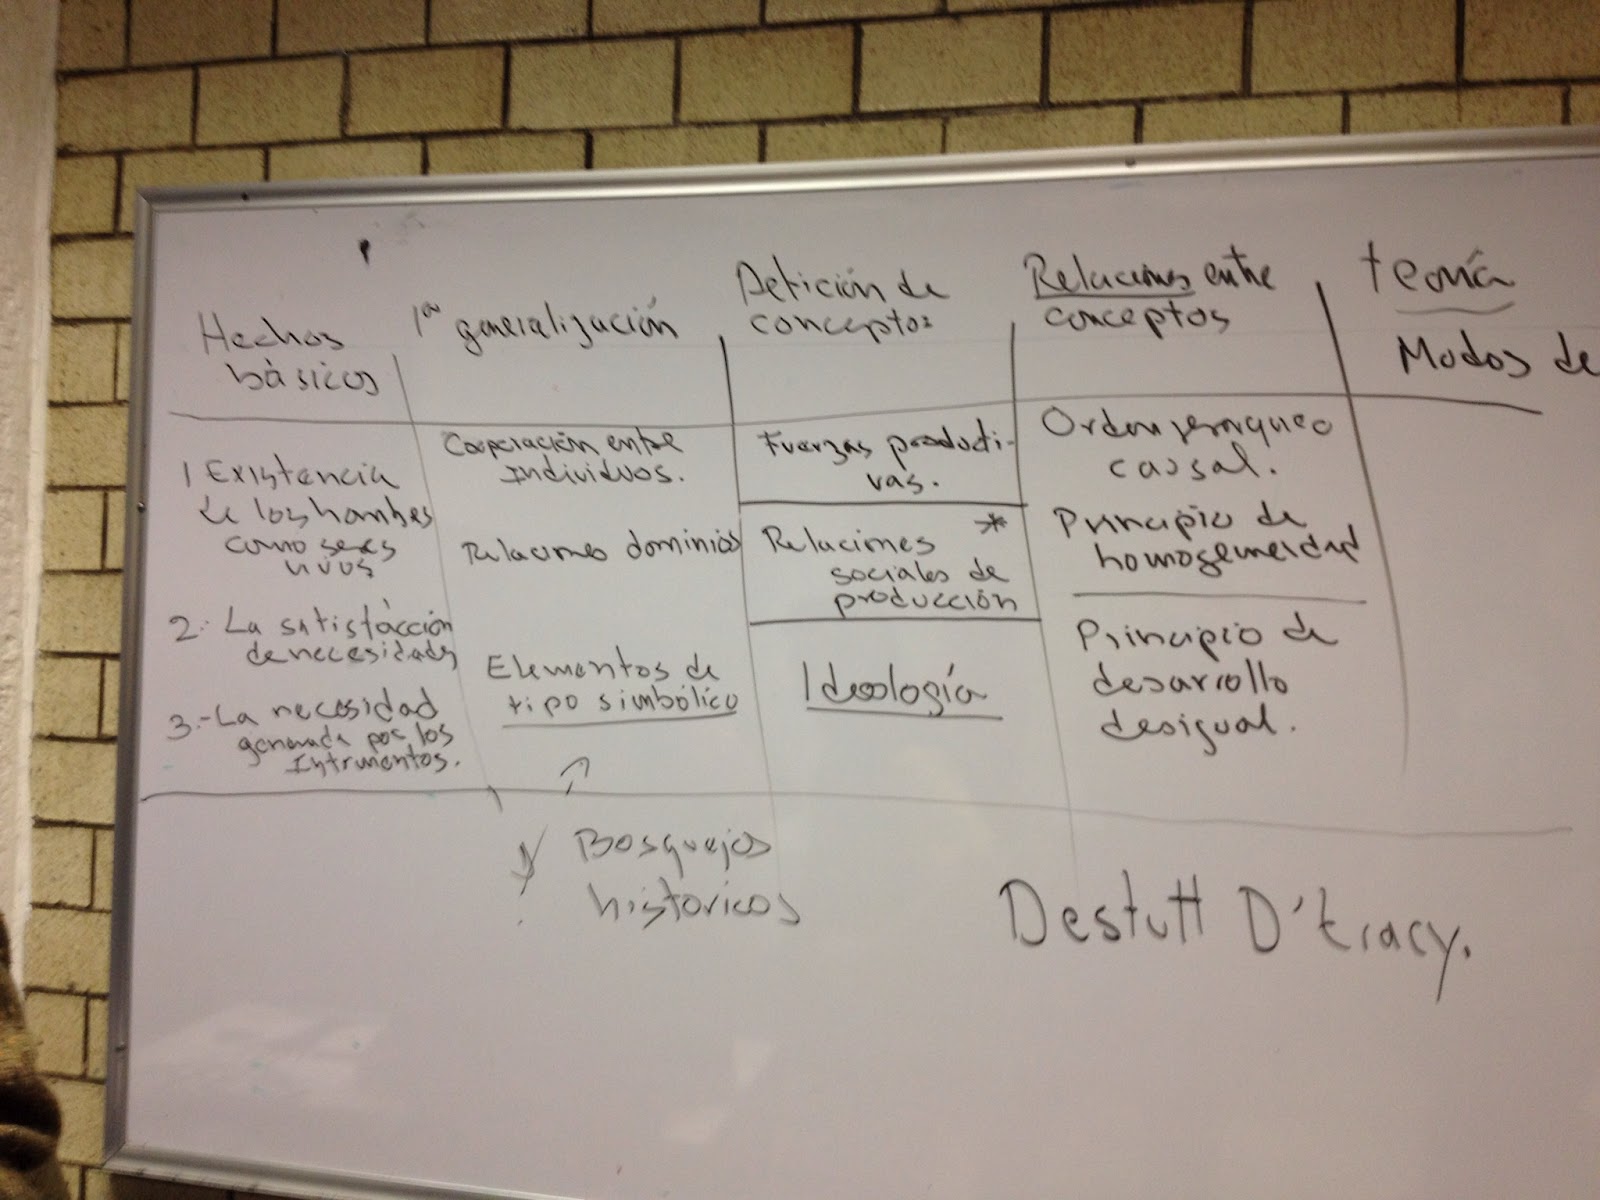 Hechos
básicos
1ª generalización
Petición de
conceptos
Relaciones entre
conceptos
teoría
Modos de
1 Existencia
de los hombres
como seres
vivos
2.- La satisfacción
de necesidades
3.- La necesidad
generada por los
Intrumentos.
Cooperación entre
Individuos.
Relaciones dominios
Elementos de
tipo simbólico
Fuerzas producti-
vas.
Relaciones *
sociales de
producción
Ideología
Orden jerarqueo
causal.
Principio de
homogeneidad
Principio de
desarrollo
desigual.
Bosquejos
historicos
Destutt D'tracy.